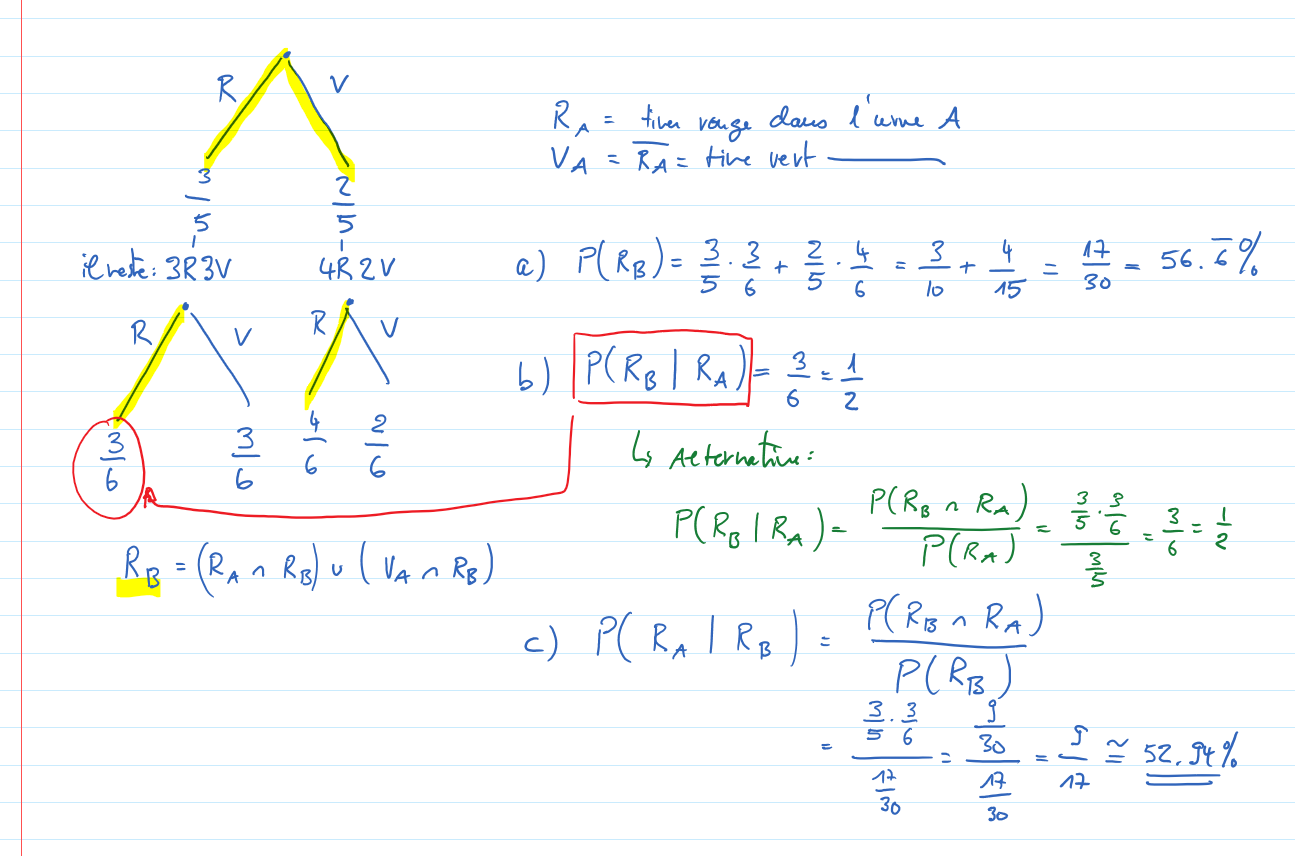 R V
3/5 2/5
il reste: 3R3V 4R2V
R V R V
3/6 3/6 4/6 2/6
R_B = (R_A ∩ R_B) ∪ (V_A ∩ R_B)
R_A = tirer rouge dans l'urne A
V_A = \overline{R_A} = tirer vert ———
a) P(R_B) = 3/5 · 3/6 + 2/5 · 4/6 = 3/10 + 4/15 = 17/30 = 56.6̅%
b) P(R_B | R_A) = 3/6 = 1/2
↳ Alternative:
P(R_B | R_A) = P(R_B ∩ R_A)/P(R_A) = (3/5 · 3/6)/(3/5) = 3/6 = 1/2
c) P(R_A | R_B) = P(R_B ∩ R_A)/P(R_B)
= (3/5 · 3/6)/(17/30) = (9/30)/(17/30) = 9/17 ≅ 52.94%